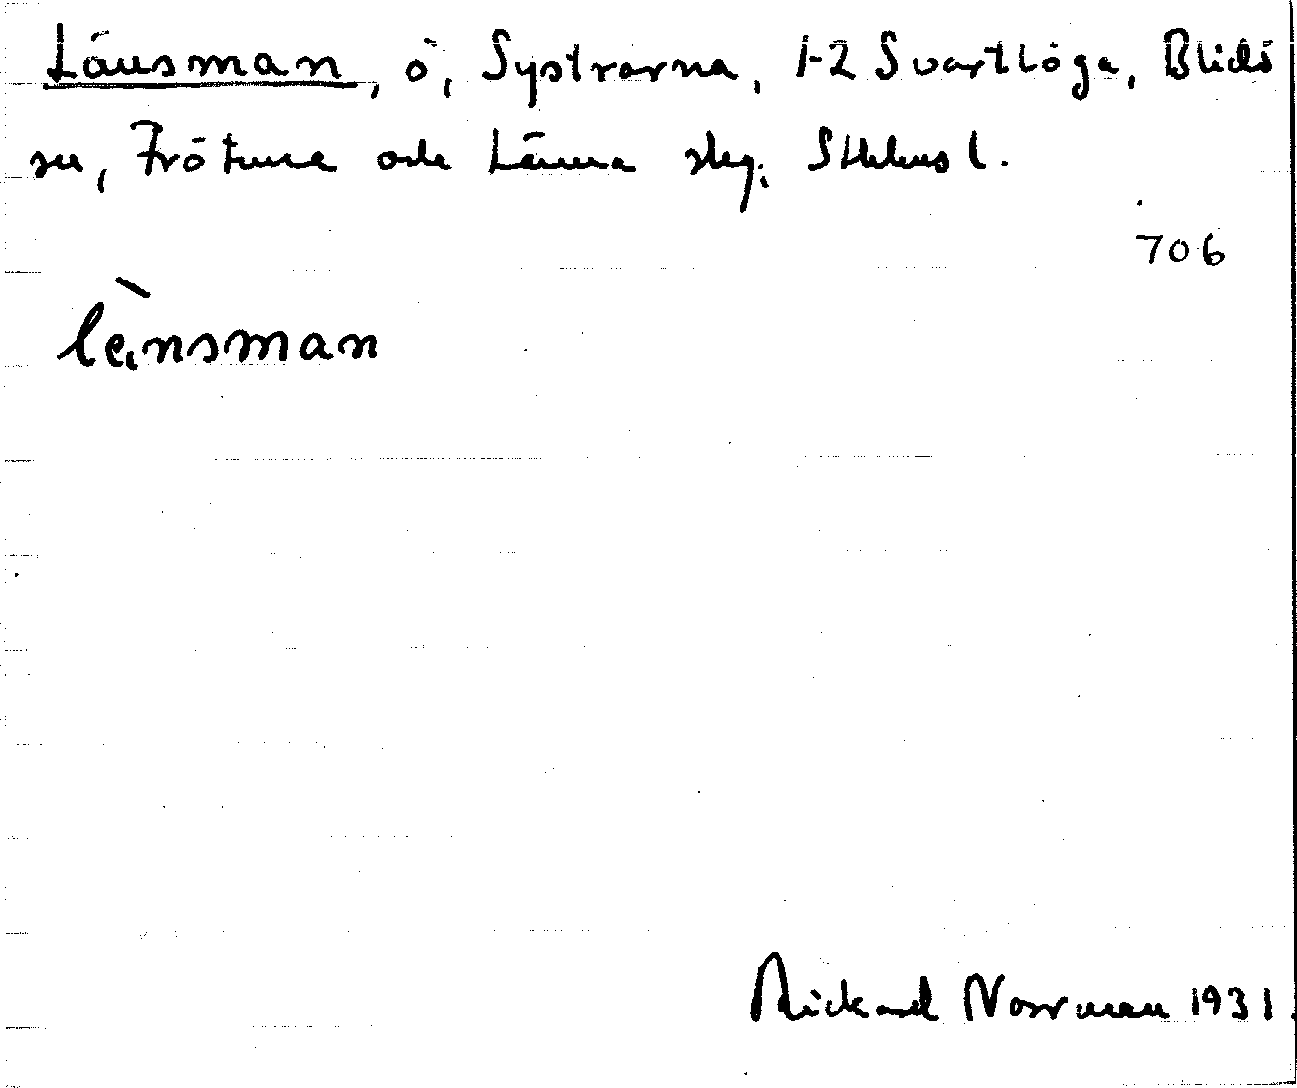 Länsman, ö, Systrarna, 1-2 Svartlöga, Blidö
sn, Frötuna och Länna skg. Sthlms l.
706
lènsman
Rickard Norrman 1931.